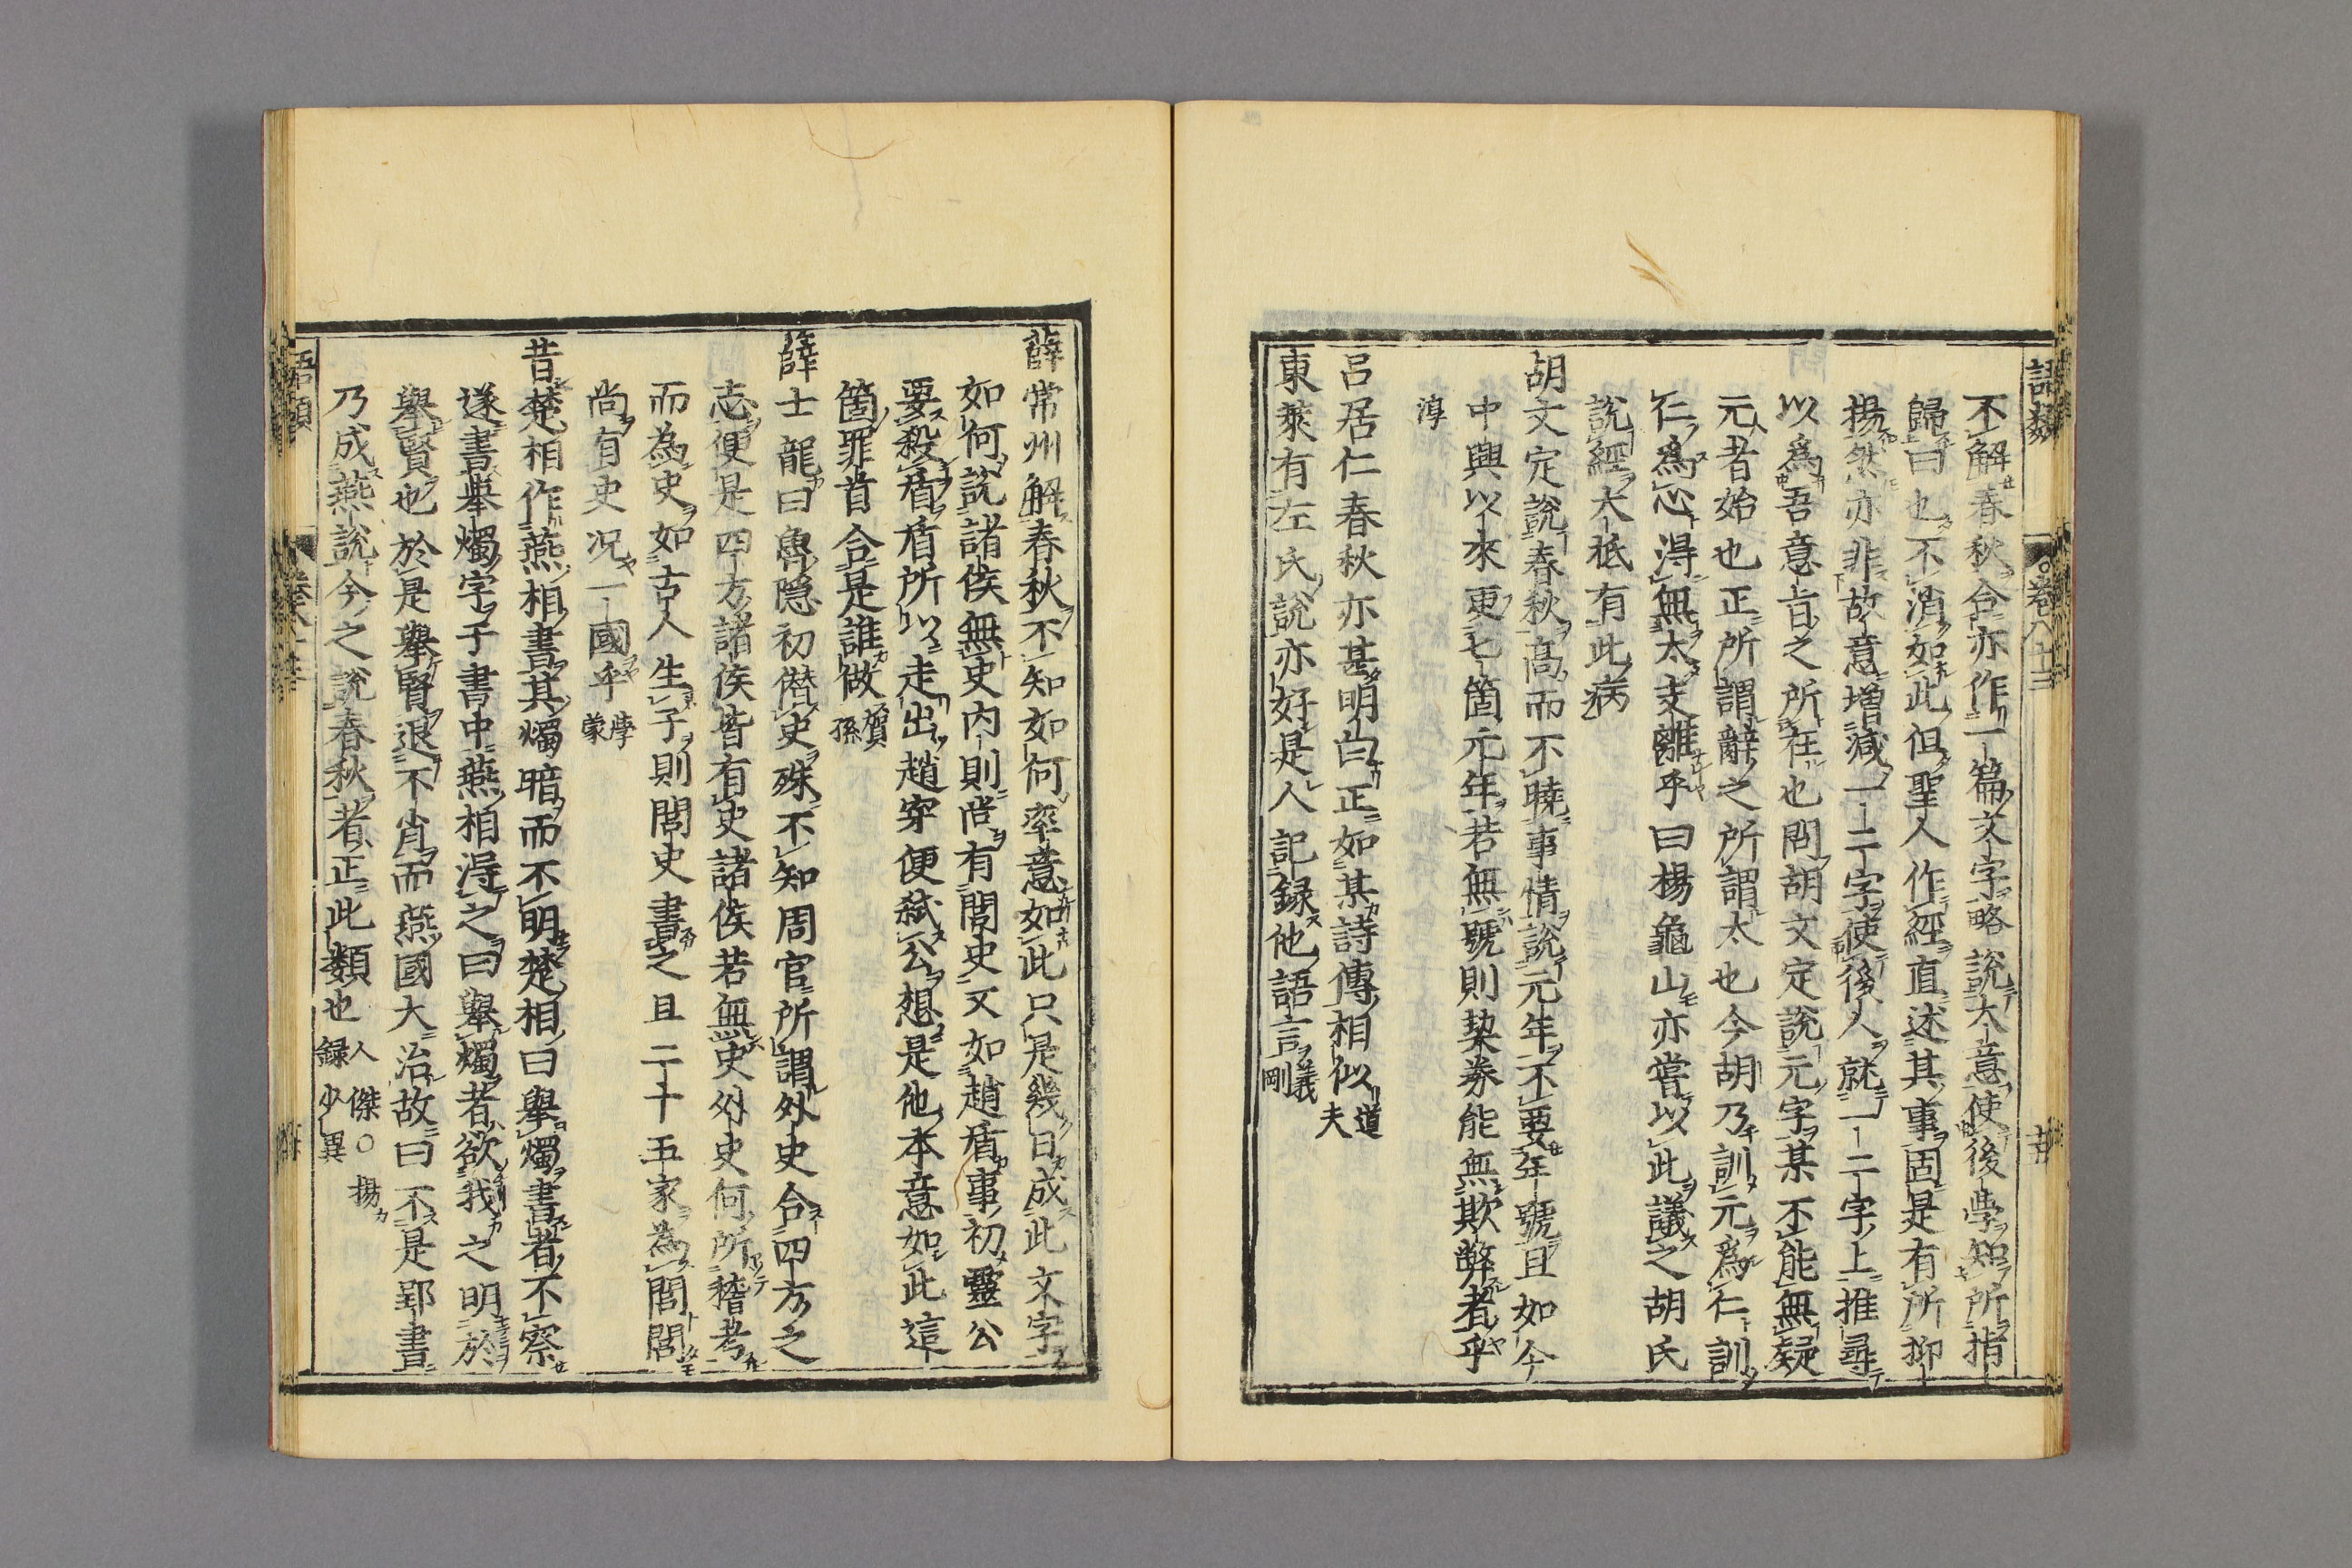 語類
卷八十三
廿
不解春秋合亦作一篇文字略說大意使後學知所指
歸曰也不消如此但聖人作經直述其事固是有所抑
揚然亦非故意增減一二字使後人就一二字上推尋
以爲吾意旨之所在也問胡文定說元字某不能無疑
元者始也正所謂辭之所謂太也今胡乃訓元爲仁訓
仁爲心得無太支離乎曰楊龜山亦嘗以此議之胡氏
說經大抵有此病
胡文定說春秋高而不曉事情說元年不要年號且如今
中興以來更七箇元年若無號則契券能無欺弊者乎
淳
呂居仁春秋亦甚明白正如某詩傳相似道夫
東萊有左氏說亦好是人記録他語言義剛
薛常州解春秋不知如何率意如此只是幾日成此文字
如何說諸侯無史內則尚有閭史又如趙盾事初靈公
要殺盾盾所以走出趙穿便弒公想是他本意如此這
箇罪首合是誰做賀孫
薛士龍曰魯隱初僭史殊不知周官所謂外史合四方之
志便是四方諸侯皆有史諸侯若無史外史何所稽考
而為史如古人生子則閭史書之且二十五家為閭閭
尚有史况一國乎學蒙
昔楚相作燕相書其燭暗而不明楚相曰舉燭書者不察
遂書舉燭字于書中燕相得之曰舉燭者欲我之明於
舉賢也於是舉賢退不肖而燕國大治故曰不是郢書
乃成燕說今之說春秋者正此類也人傑○揚録少異
語類